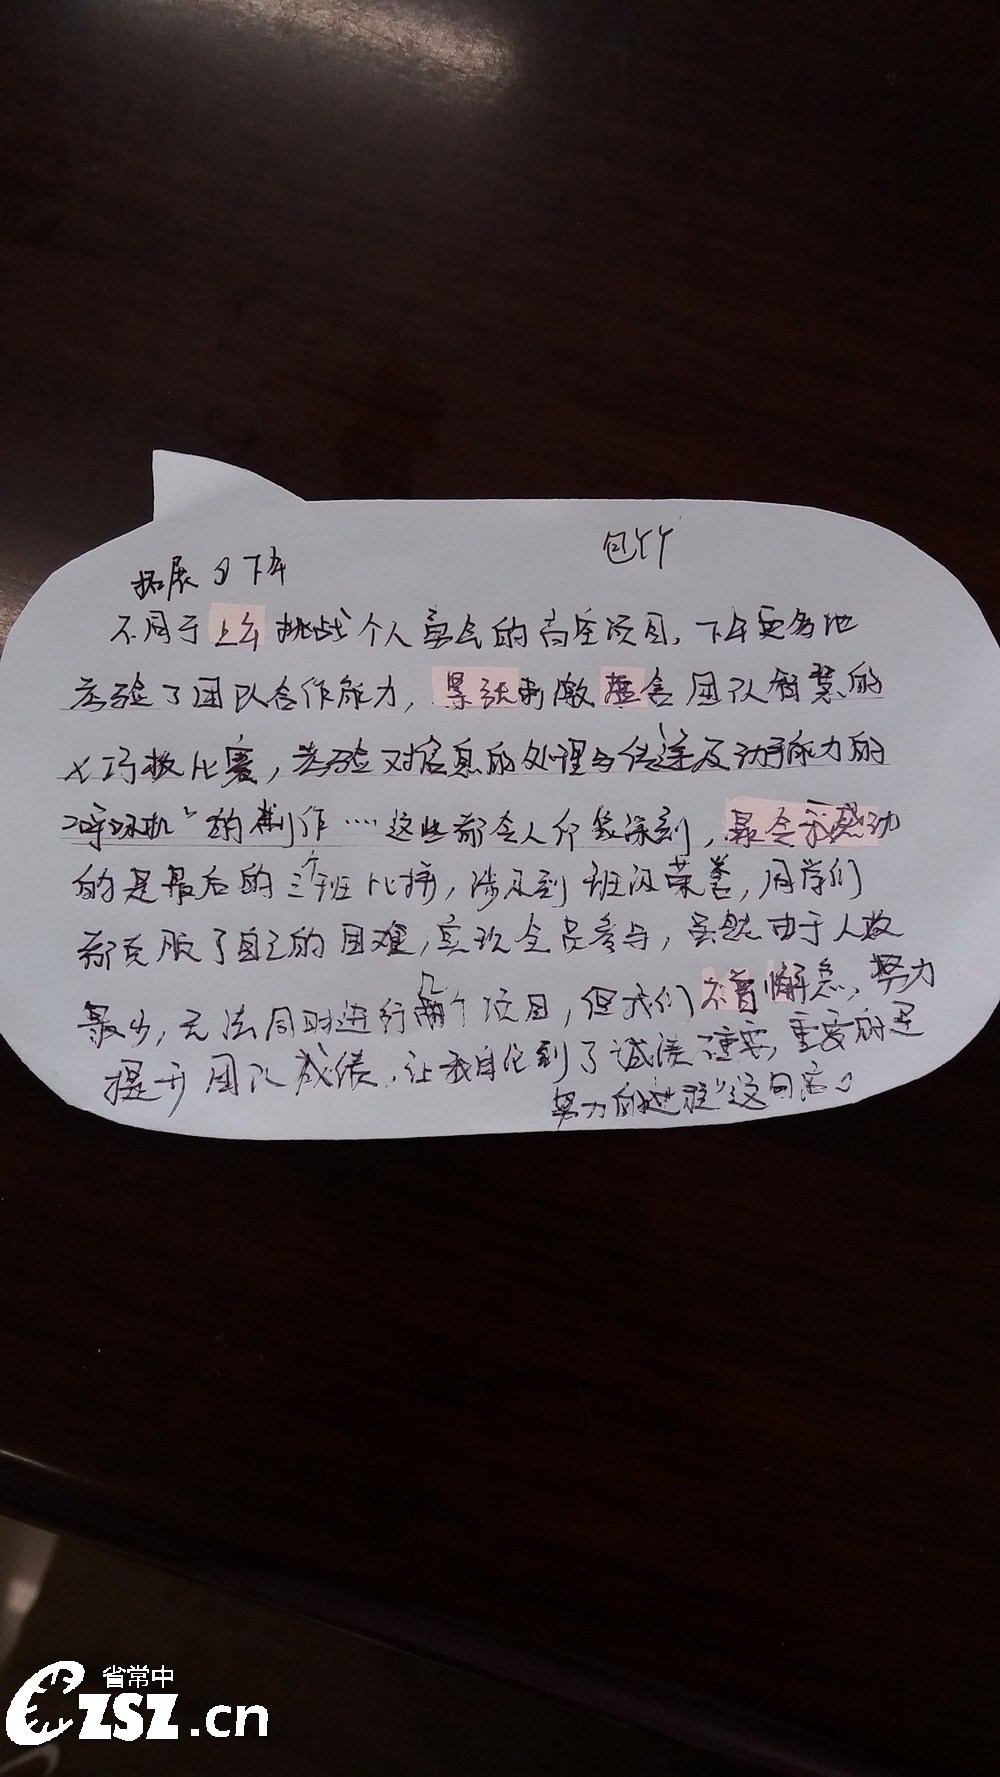 包丫丫
拓展日下午
不同于上午挑战个人勇气的高空项目,下午更多地
考验了团队合作能力,紧张刺激蕴含团队智慧的
七巧板比赛,考验对信息的处理与传达及动手能力的
“呼叫机”的制作……这些都令人印象深刻,最令我感动
的是最后的三个班比拼,涉及到班级荣誉,同学们
都克服了自己的困难,实现全员参与,虽然由于人数
最少,无法同时进行几个项目,但我们不曾懈怠,努力
提升团队成绩,让我自 到了 成绩 重要,重要的是
努力的过程”这句话。
省常中
CZSZ.cn